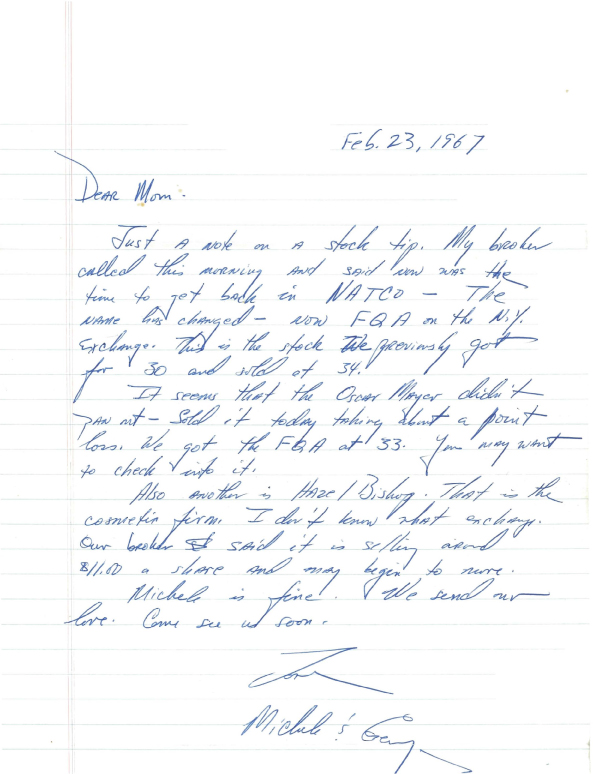 Feb. 23, 1967
Dear Mom.
Just a note on a stock tip. My broker
called this morning and said now was the
time to get back in NATCO – The
name has changed – now FQA on the N.Y.
Exchange. This is the stock We previously got
for 30 and sold at 34.
It seems that the Oscar Mayer didn't
pan out – Sold it today taking about a point
loss. We got the FQA at 33. You may want
to check into it.
Also another is Hazel Bishop. That is the
cosmetic firm. I don't know what exchange.
Our broker said it is selling around
$11.00 a share and may begin to move.
Michele is fine. We send our
love. Come see us soon.
Michele &